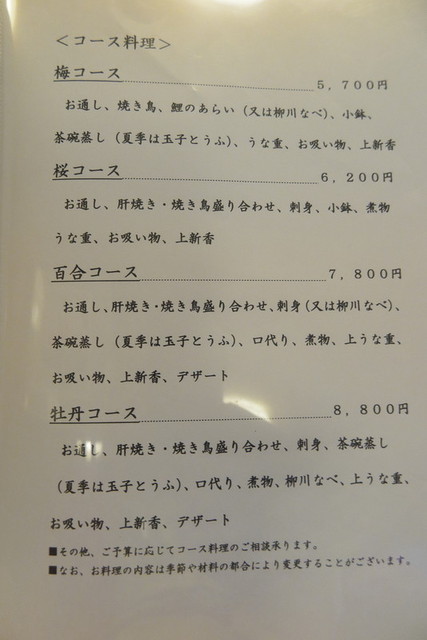 ＜コース料理＞
梅コース 5,700円
お通し、焼き鳥、鯉のあらい（又は柳川なべ）、小鉢、
茶碗蒸し（夏季は玉子とうふ）、うな重、お吸い物、上新香
桜コース 6,200円
お通し、肝焼き・焼き鳥盛り合わせ、刺身、小鉢、煮物
うな重、お吸い物、上新香
百合コース 7,800円
お通し、肝焼き・焼き鳥盛り合わせ、刺身（又は柳川なべ）、
茶碗蒸し（夏季は玉子とうふ）、口代り、煮物、上うな重、
お吸い物、上新香、デザート
牡丹コース 8,800円
お通し、肝焼き・焼き鳥盛り合わせ、刺身、茶碗蒸し
（夏季は玉子とうふ）、口代り、煮物、柳川なべ、上うな重、
お吸い物、上新香、デザート
■その他、ご予算に応じてコース料理のご相談承ります。
■なお、お料理の内容は季節や材料の都合により変更することがございます。